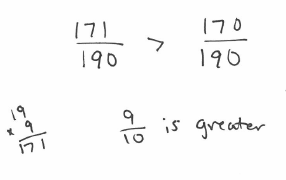 171/190 > 170/190
19
× 9
171
9/10 is greater